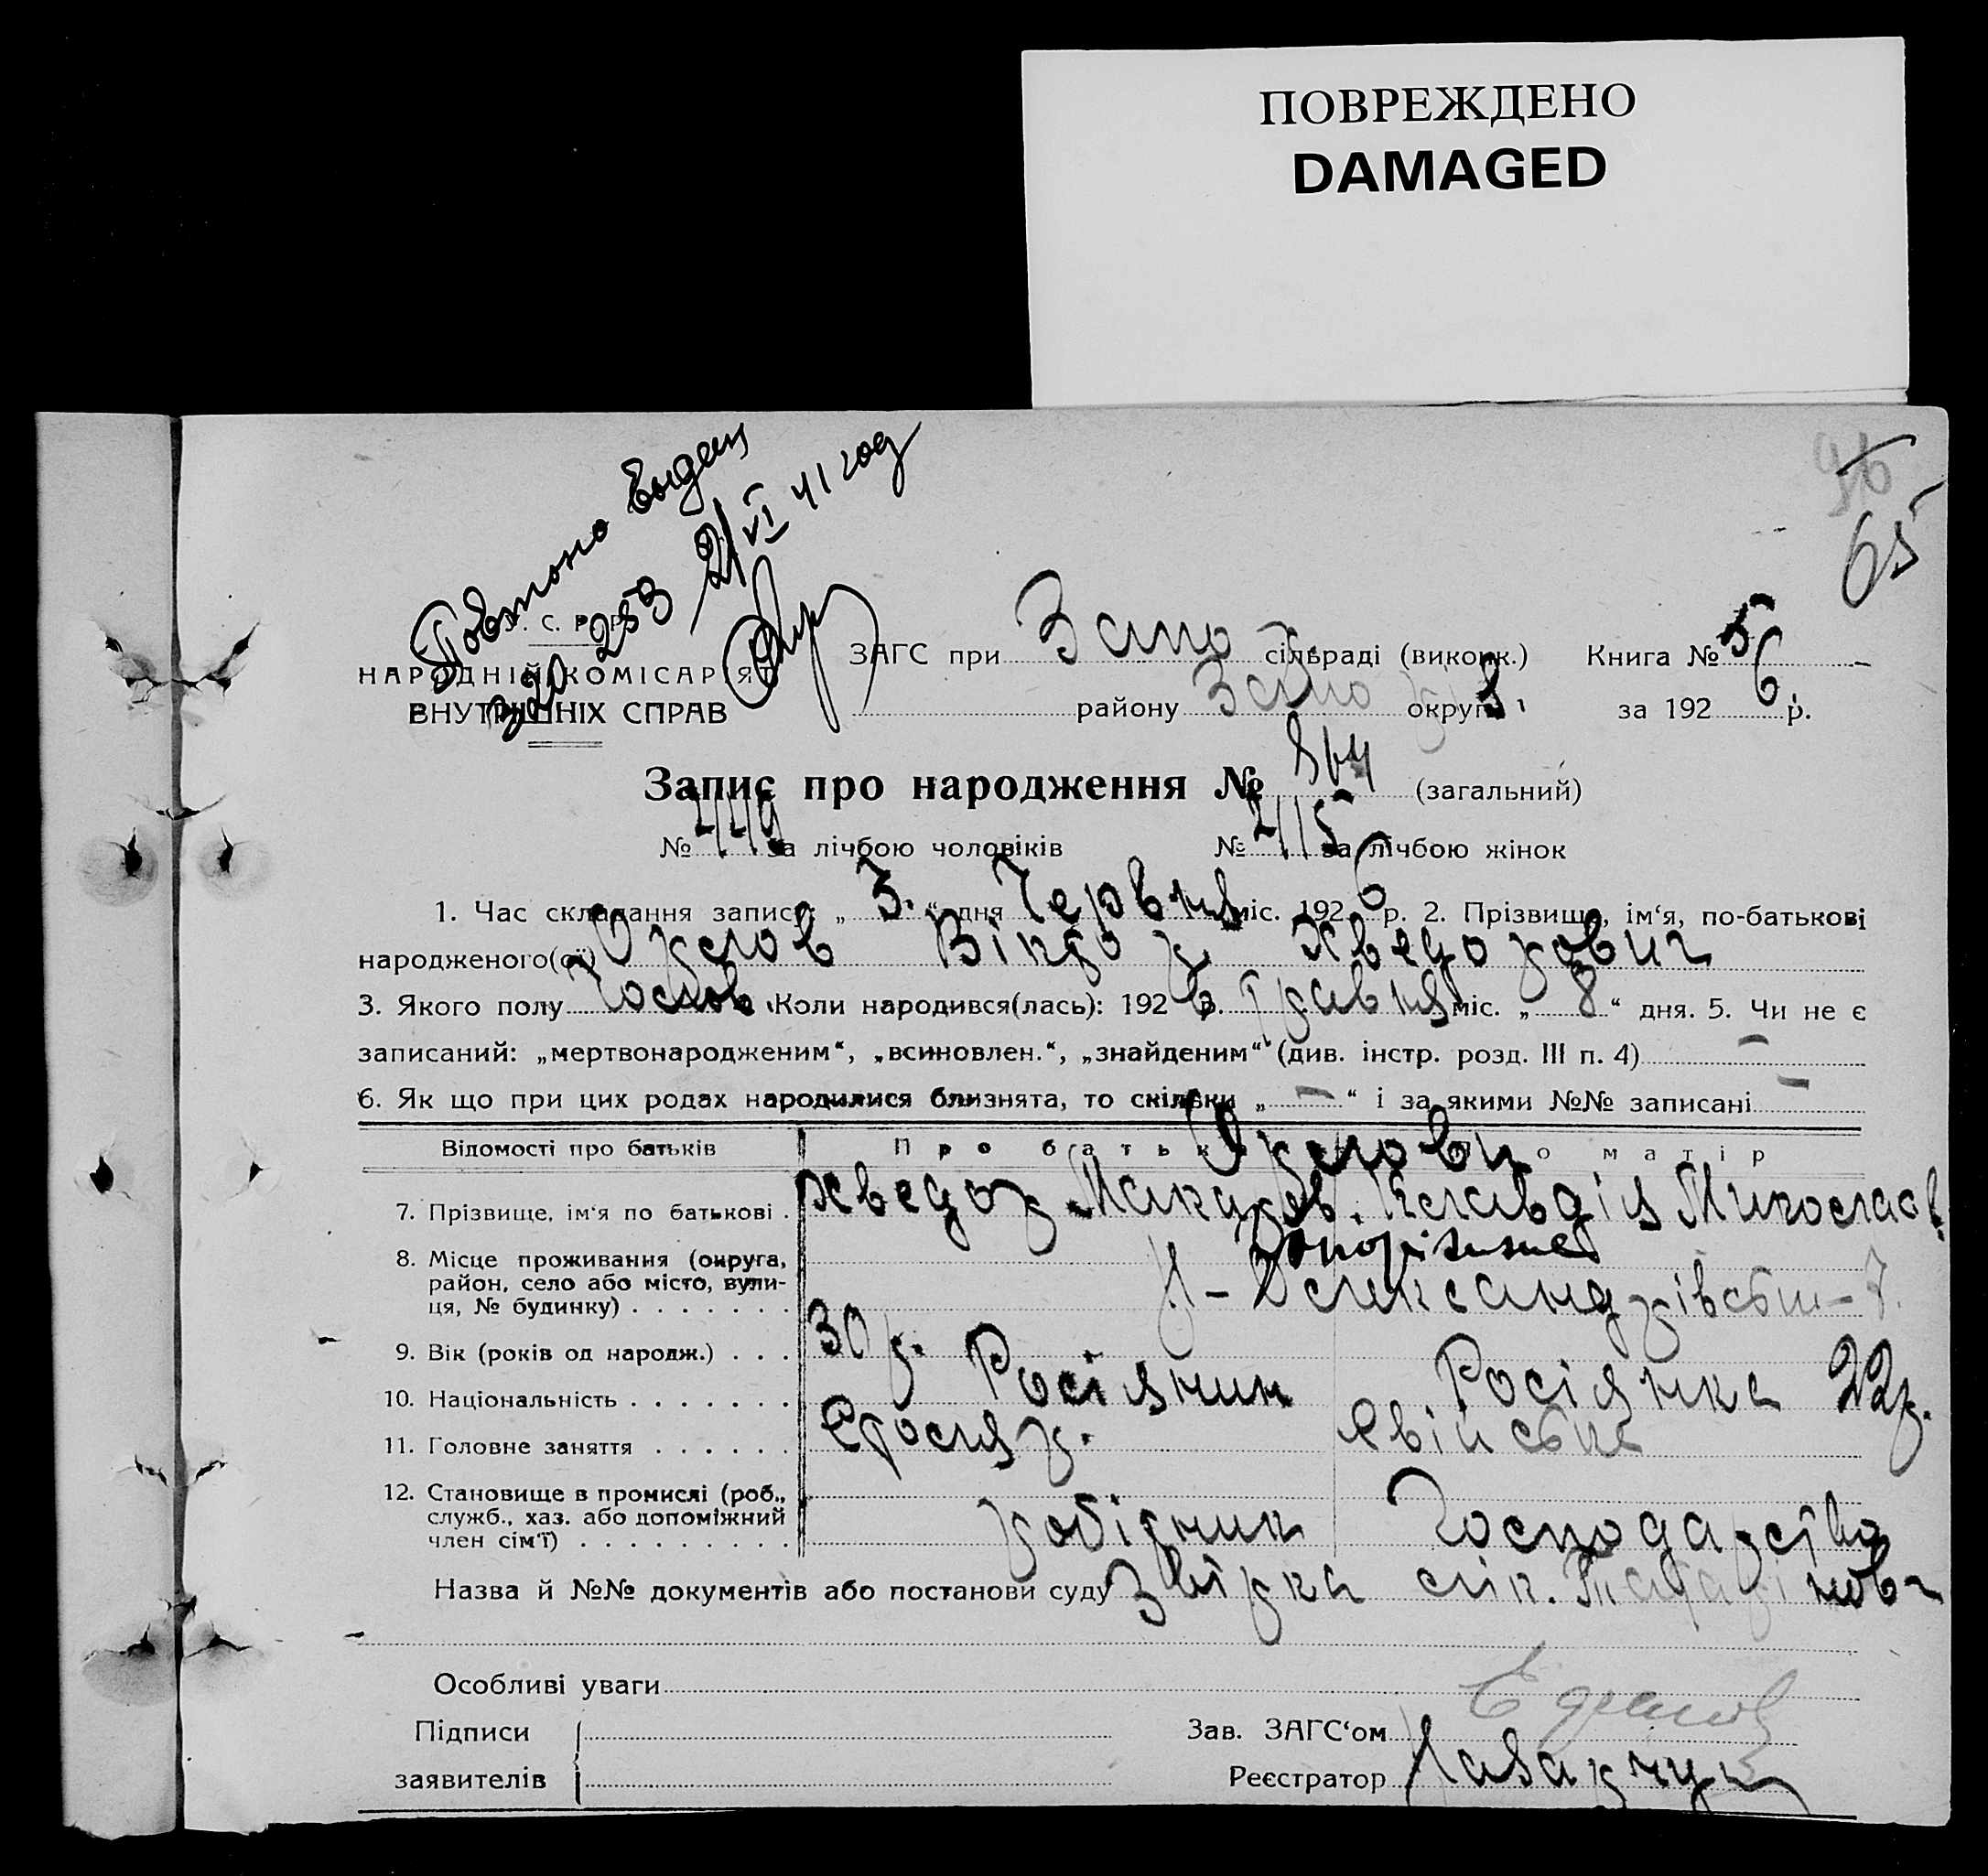 ПОВРЕЖДЕНО
DAMAGED
65
Повторно Выдан
320 253 21/VI 41 год
У. С. Р. Р.
НАРОДНІЙ КОМІСАРІЯТ
ВНУТРІШНІХ СПРАВ
ЗАГС при Запо сільраді (виконк.) Книга № 5
району Запо округи за 1926 р.
Запис про народження № (загальний)
№ за лічбою чоловіків № 415 за лічбою жінок
1. Час складання запису: „3“ дня Червня міс. 1926 р. 2. Прізвище, ім‘я, по-батькові
народженого(ої) Орлов Віктор Хведорович
3. Якого полу Чолов. Коли народився(лась): 1926 р. Травня міс. „8“ дня. 5. Чи не є
записаний: „мертвонародженим“, „всиновлен.“, „знайденим“ (див. інстр. розд. III п. 4) –
6. Як що при цих родах народилися близнята, то скільки „–“ і за якими №№ записані –
Відомості про батьків Про батька Про матір
Орлови
7. Прізвище, ім‘я по батькові . Хведор Макаров. Клавдія Миколаєв.
8. Місце проживання (округа,
район, село або місто, вули-
ця, № будинку) . . . . . . . Олександрівськ
9. Вік (років од народж.) . . . 30 р. 22 р.
10. Національність . . . . . . . Росіянин Росіянка
11. Головне заняття . . . . . . Столяр. свійське
12. Становище в промислі (роб.,
служб., хаз. або допоміжний
член сім‘ї) . . . . . . . . . робітник господарство
Назва й №№ документів або постанови суду
Особливі уваги
Підписи
заявителів
Зав. ЗАГС‘ом
Реєстратор